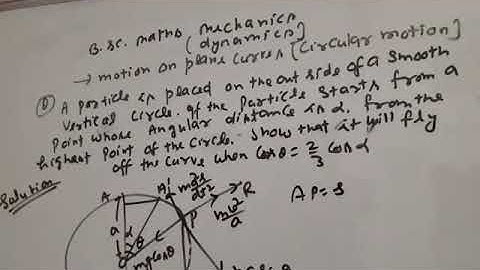 B.sc. maths mechanics
(dynamics)
→ motion on plane curves [Circular motion]
① A Particle is placed on the out side of a smooth
vertical circle. If the Particle starts from a
point whose Angular distance is α, from the
highest Point of the Circle. Show that it will fly
off the curve when Cosθ = 2/3 Cos α
Solution
A A' R
P
AP = S
a α θ
mv²/a
mg Cosθ